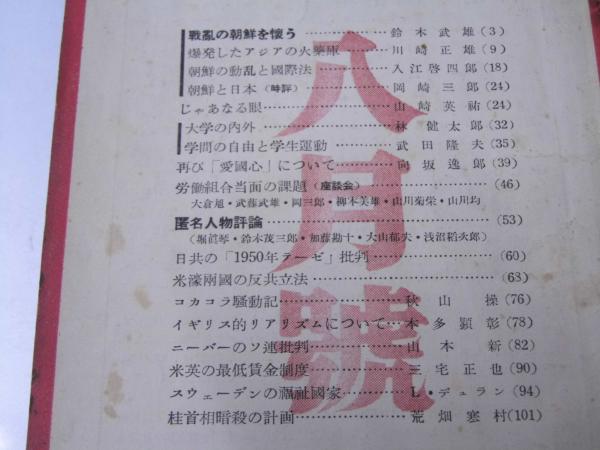 八月號
戰亂の朝鮮を懐う…………鈴木武雄(3)
爆発したアジアの火藥庫…………川崎正雄(9)
朝鮮の動乱と國際法…………入江啓四郎(18)
朝鮮と日本(時評)…………岡崎三郎(24)
じゃあなる眼…………山崎英祐(24)
大学の内外…………林健太郎(32)
学問の自由と学生運動…………武田隆夫(35)
再び「愛國心」について…………向坂逸郎(39)
労働組合当面の課題(座談会)…………(46)
大倉旭・武藤武雄・岡三郎・柳本美雄・山川菊栄・山川均
匿名人物評論…………(53)
(堀眞琴・鈴木茂三郎・加藤勘十・大山郁夫・浅沼稻次郎)
日共の「1950年テーゼ」批判…………(60)
米濠兩國の反共立法…………(63)
コカコラ騒動記…………秋山操(76)
イギリス的リアリズムについて…本多顕彰(78)
ニーバーのソ連批判…………山本新(82)
米英の最低賃金制度…………三宅正也(90)
スウェーデンの福祉國家…………L・デュラン(94)
桂首相暗殺の計画…………荒畑寒村(101)